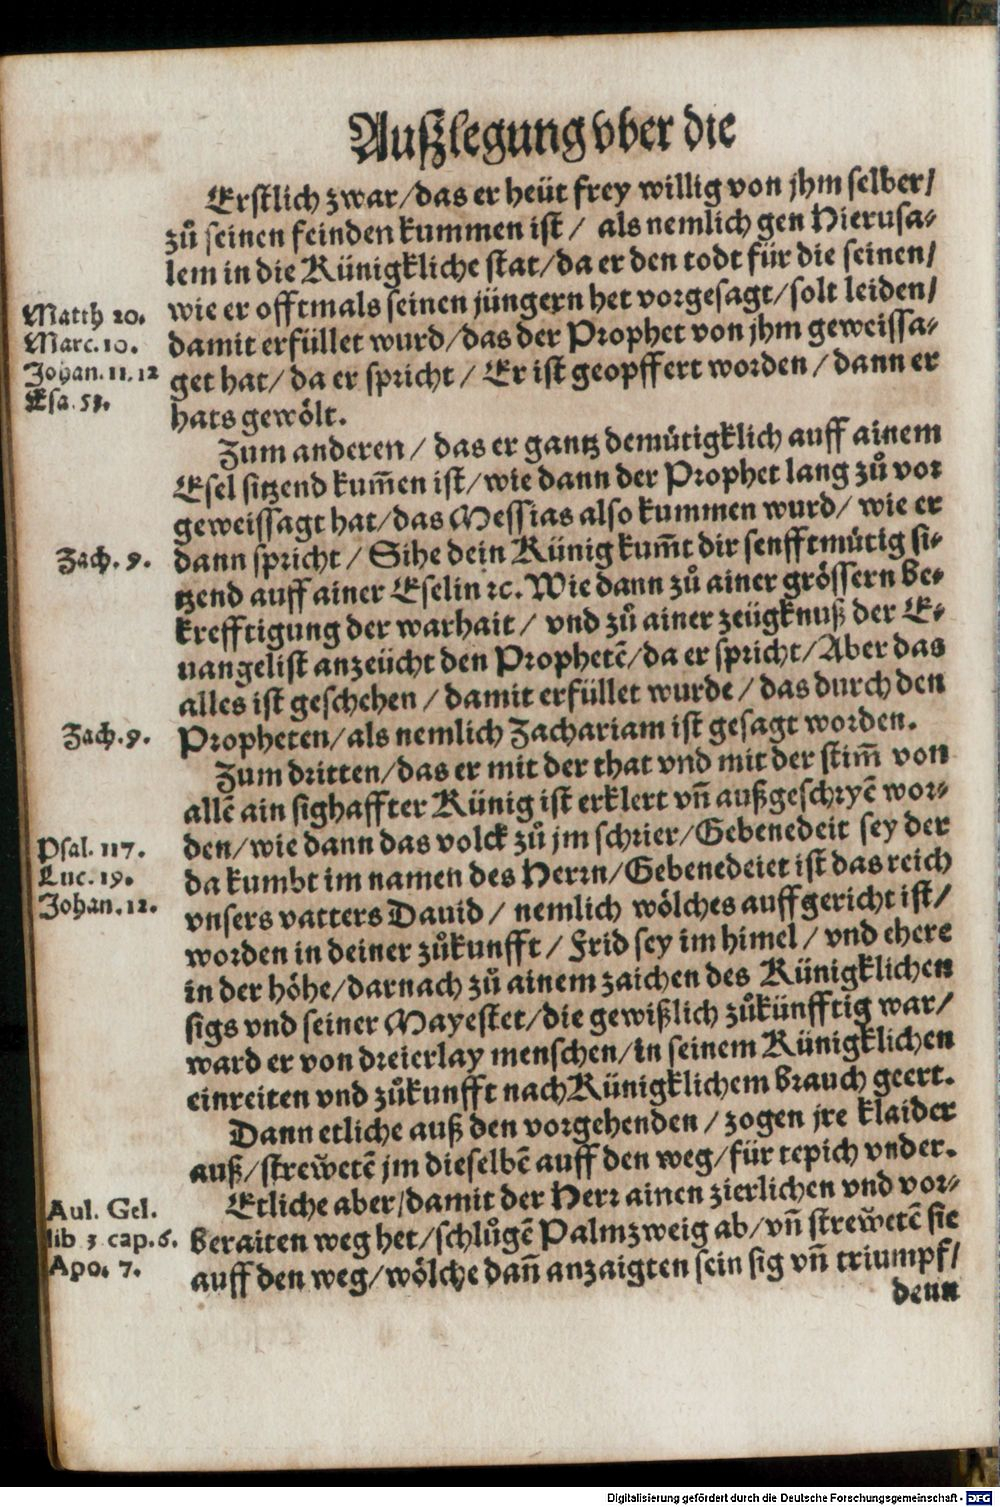 Außzlegung vber die
Erstlich zwar/das er heüt frey willig von jhm selber/
zů seinen feinden kummen ist / als nemlich gen Hierusa-
lem in die Künigkliche stat/da er den todt für die seinen/
Matth 20.
wie er offtmals seinen jüngern het vorgesagt/solt leiden/
Marc. 10.
damit erfüllet wurd/das der Prophet von jhm geweissa-
Johan. 11. 12
get hat/ da er spricht / Er ist geopffert worden / dann er
Esa. 53.
hats gewölt.
Zum anderen / das er gantz demütigklich auff ainem
Esel sitzend kum̄en ist/wie dann der Prophet lang zů vor
geweissagt hat/das Messias also kummen wurd/ wie er
Zach. 9.
dann spricht / Sihe dein Künig kum̄t dir senfftmütig si-
tzend auff ainer Eselin ꝛc. Wie dann zů ainer grössern be-
krefftigung der warhait / vnd zů ainer zeügknuß der E-
uangelist anzeücht den Prophetē/da er spricht/Aber das
alles ist geschehen / damit erfüllet wurde / das durch den
Zach. 9.
Propheten/als nemlich Zachariam ist gesagt worden.
Zum dritten/das er mit der that vnd mit der stim̄ von
allē ain sighaffter Künig ist erklert vn̄ außgeschryē wor-
Psal. 117.
den/wie dann das volck zů jm schrier/Gebenedeit sey der
Luc. 19.
da kumbt im namen des Herrn/Gebenedeiet ist das reich
Johan. 12.
vnsers vatters Dauid / nemlich wölches auffgericht ist/
worden in deiner zůkunfft / Frid sey im himel / vnd ehere
in der höhe/darnach zů ainem zaichen des Künigklichen
sigs vnd seiner Mayestet/die gewißlich zůkünfftig war/
ward er von dreierlay menschen/in seinem Künigklichen
einreiten vnd zůkunfft nach Künigklichem brauch geert.
Dann etliche auß den vorgehenden / zogen jre klaider
auß/strewetē jm dieselbē auff den weg/für tepich vnder.
Aul. Gel.
Etliche aber/damit der Herr ainen zierlichen vnd vor-
lib 3 cap. 6.
beraiten weg het/schlůgē Palmzweig ab/vn̄ strewetē sie
Apo. 7.
auff den weg/wölche dan̄ anzaigten sein sig vn̄ triumpf/
denn
Digitalisierung gefördert durch die Deutsche Forschungsgemeinschaft - DFG